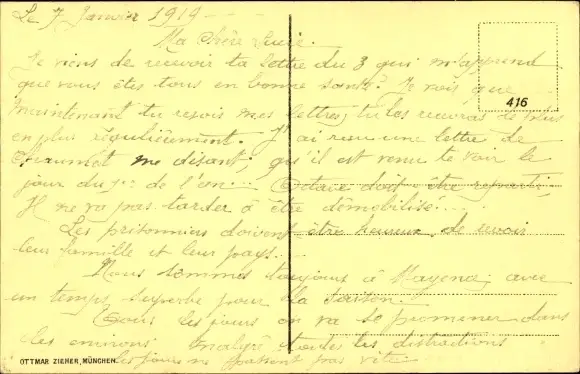 Le 7 Janvier 1919 -
Ma Chère Lucie.
Je viens de recevoir ta lettre du 3 qui m'apprend
que vous êtes tous en bonne santé. Je vois que
maintenant tu reçois mes lettres, tu les recevras de plus
en plus régulièrement. J'ai reçu une lettre de
Chaumot me disant, qu'il est venu te voir le
jour du 1er de l'an... Octave doit être reparti,
Il ne va pas tarder à être démobilisé....
Les prisonniers doivent être heureux de revoir
leur famille et leur pays...
Nous sommes toujours à Mayence, avec
un temps superbe pour la saison.
Tous les jours on va se promener dans
les environs malgré toutes les distractions
les jours ne passent pas vite.
416
OTTMAR ZIEHER, MÜNCHEN.